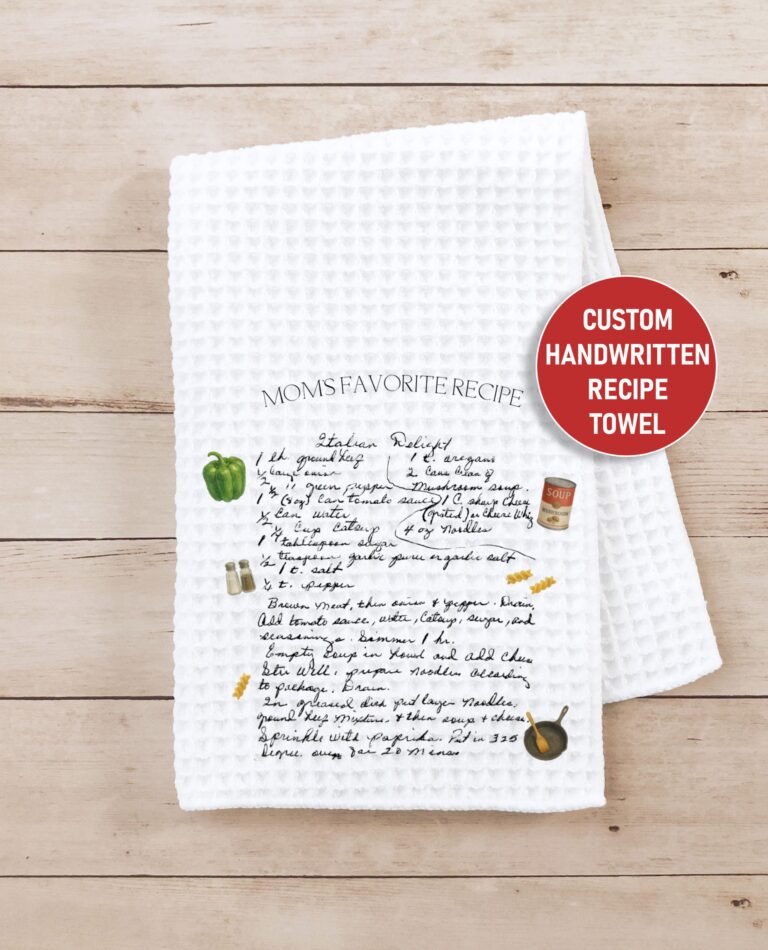 MOM'S FAVORITE RECIPE
Italian Delight
1 lb ground beef
1 large onion
green pepper
1 (8 oz) Can tomato sauce
½ Can water
Cup Catsup
1 tablespoon sugar
½ teaspoon garlic pure or garlic salt
1 t. salt
½ t. pepper
1 t. oregano
2 Cans Cream of
Mushroom soup.
1 C. sharp Cheese
(grated) or Cheese Whiz
4 oz Noodles
Brown Meat, then onion & pepper. Drain,
Add tomato sauce, water, Catsup, sugar, and
seasonings. Simmer 1 hr.
Empty Soup in bowl and add Cheese
Stir Well. prepare Noodles according
to package. Drain.
In greased dish put layer Noodles,
ground beef Mixture, & then soup & cheese
Sprinkle With paprika. Put in 325
Degree oven for 20 Mins
SOUP
CUSTOM
HANDWRITTEN
RECIPE
TOWEL